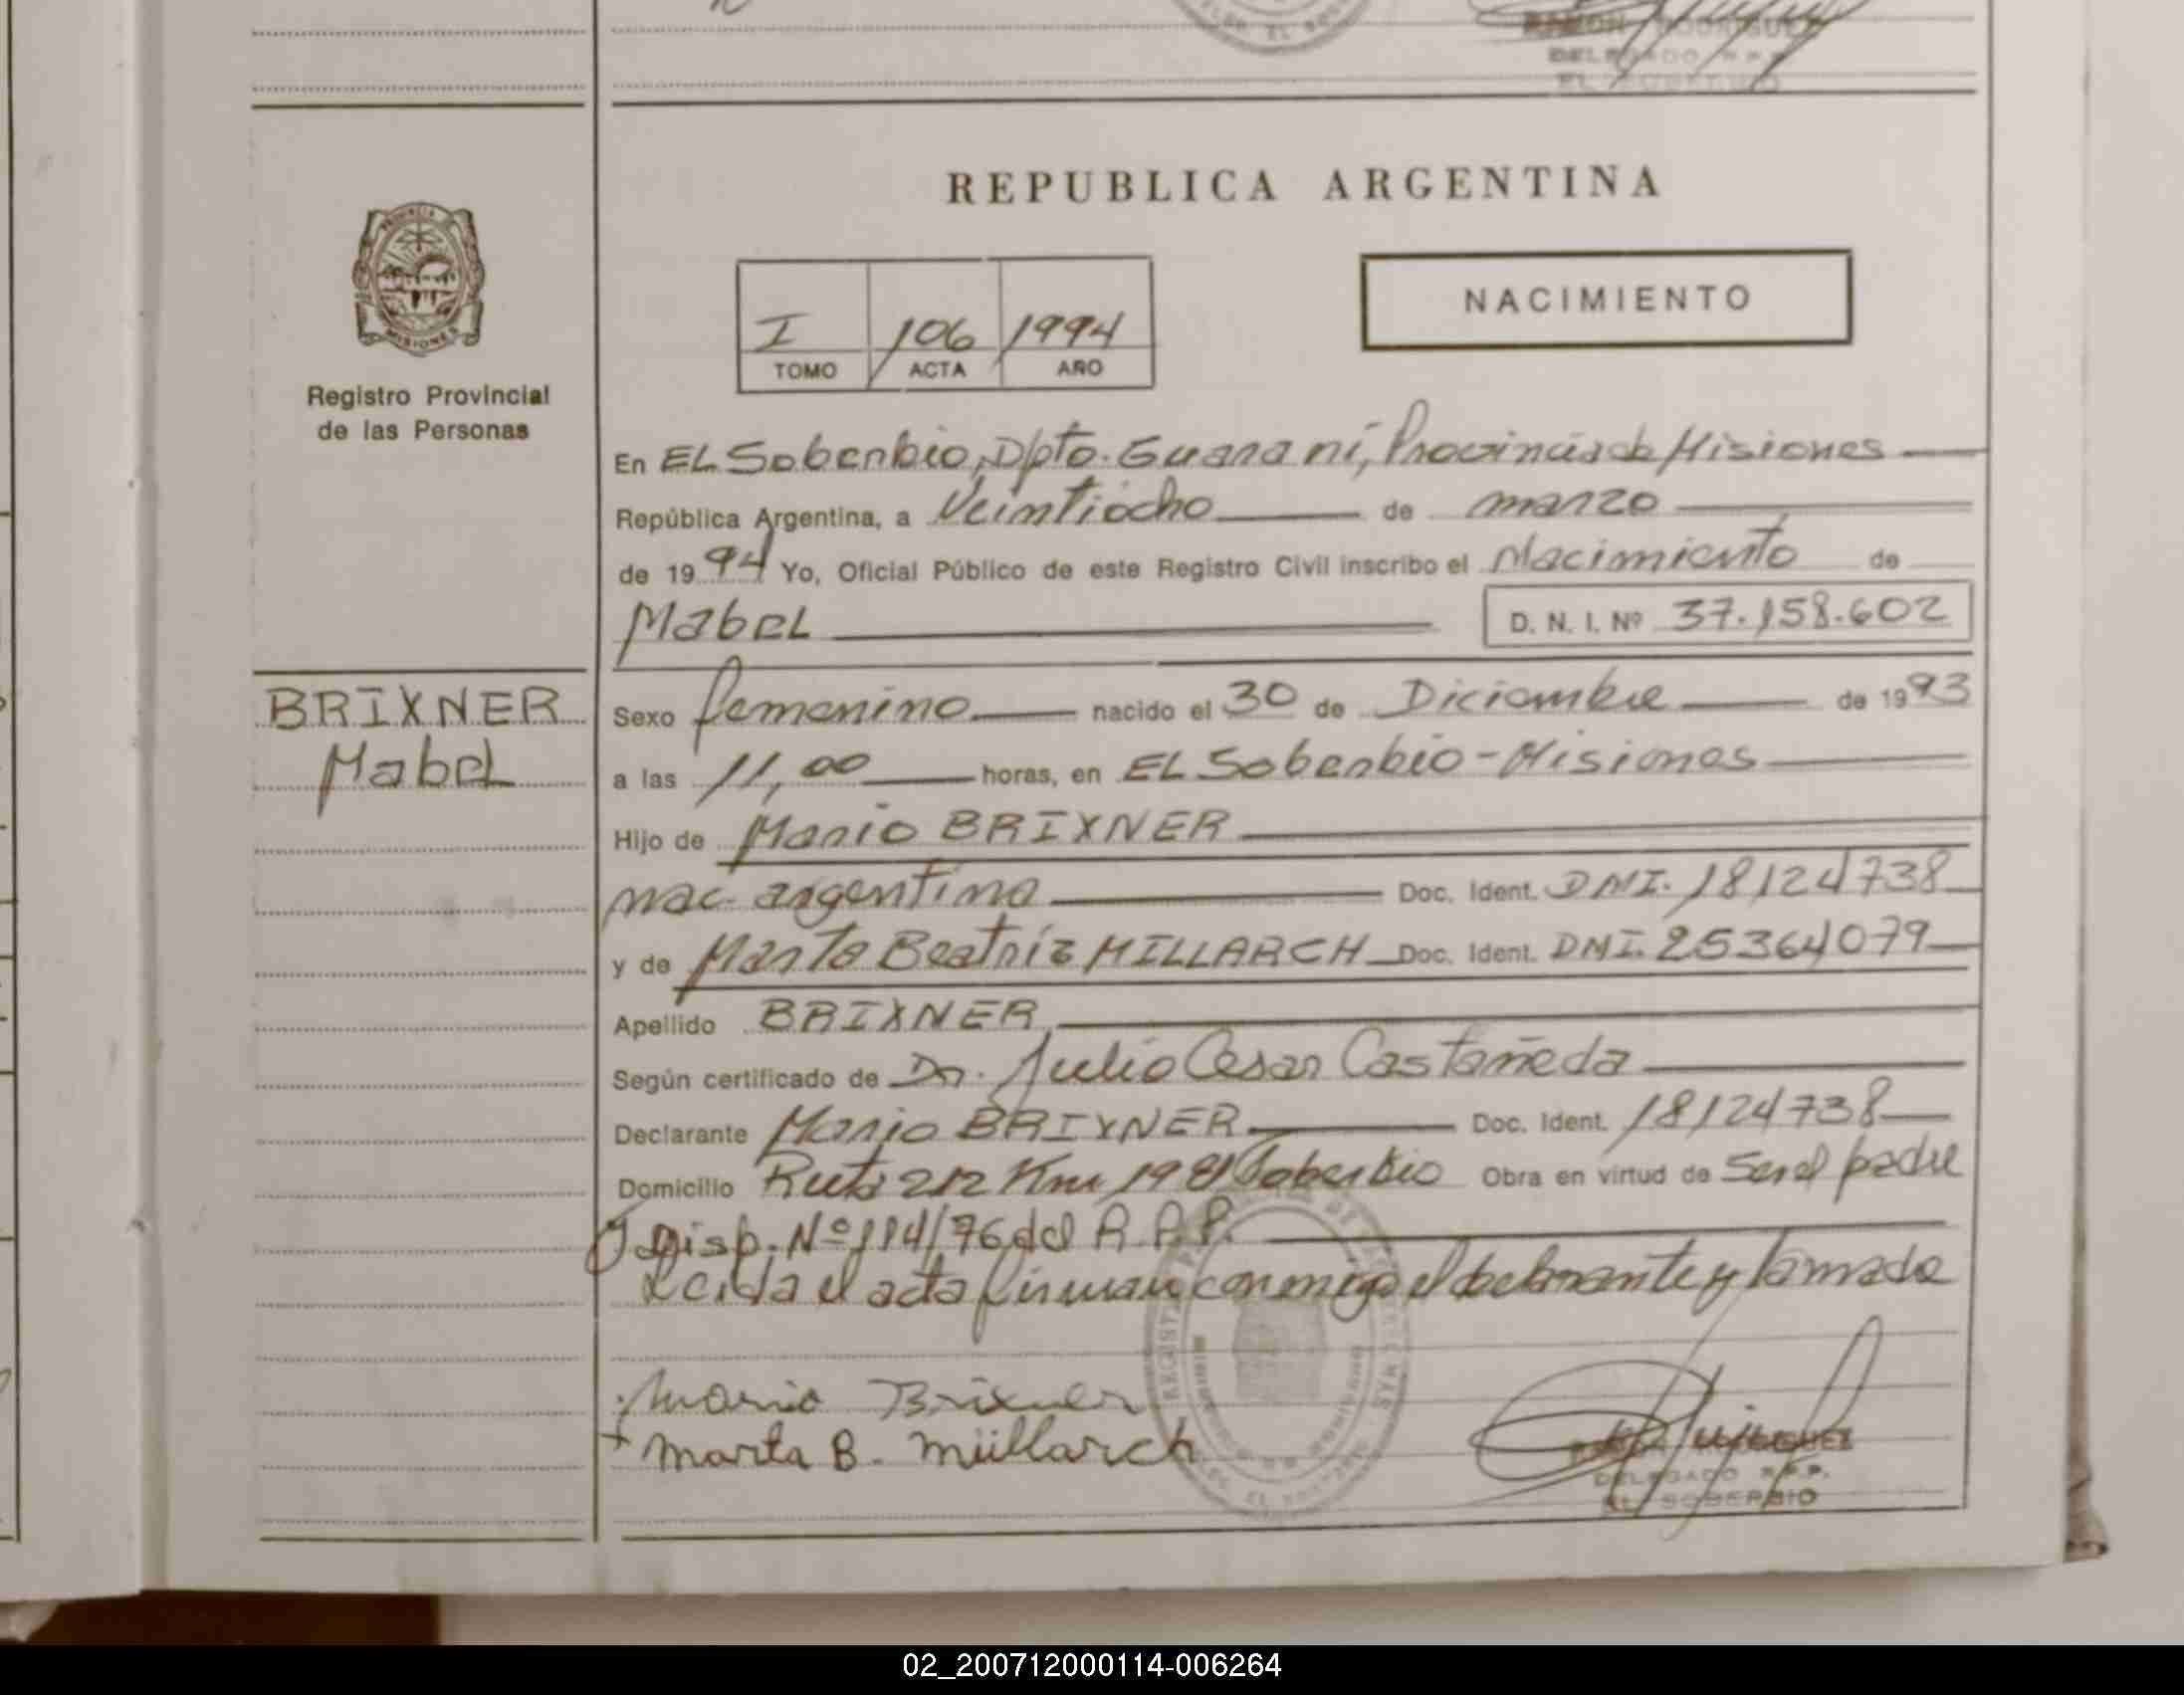 RAMON RODRIGUEZ
DELEGADO R.P.P.
EL SOBERBIO
REPUBLICA ARGENTINA
PROVINCIA
MISIONES
I 106 1994
TOMO ACTA AÑO
NACIMIENTO
Registro Provincial
de las Personas
En EL Soberbio, Dpto. Guarani, Provincia de Misiones
República Argentina, a Veintiocho de marzo
de 1994 Yo, Oficial Público de este Registro Civil inscribo el Nacimiento de
Mabel D. N. I. Nº 37.158.602
BRIXNER
Mabel
Sexo femenino nacido el 30 de Diciembre de 1993
a las 11,00 horas, en EL Soberbio - Misiones
Hijo de Mario BRIXNER
nac. argentina Doc. Ident. DNI. 18124738
y de Marta Beatríz MILLARCH Doc. Ident. DNI. 25364079
Apellido BRIXNER
Según certificado de Dr. Julio Cesar Castañeda
Declarante Mario BRIXNER Doc. Ident. 18124738
Domicilio Ruta 212 Km 19 El Soberbio Obra en virtud de Ser el padre
y Disp. Nº 114/76 del R.P.P.
Leida el acta firman conmigo el declarante y la madre
Mario Brixner
+ Marta B. Müllarch
DELEGADO R.P.P.
EL SOBERBIO
02_200712000114-006264